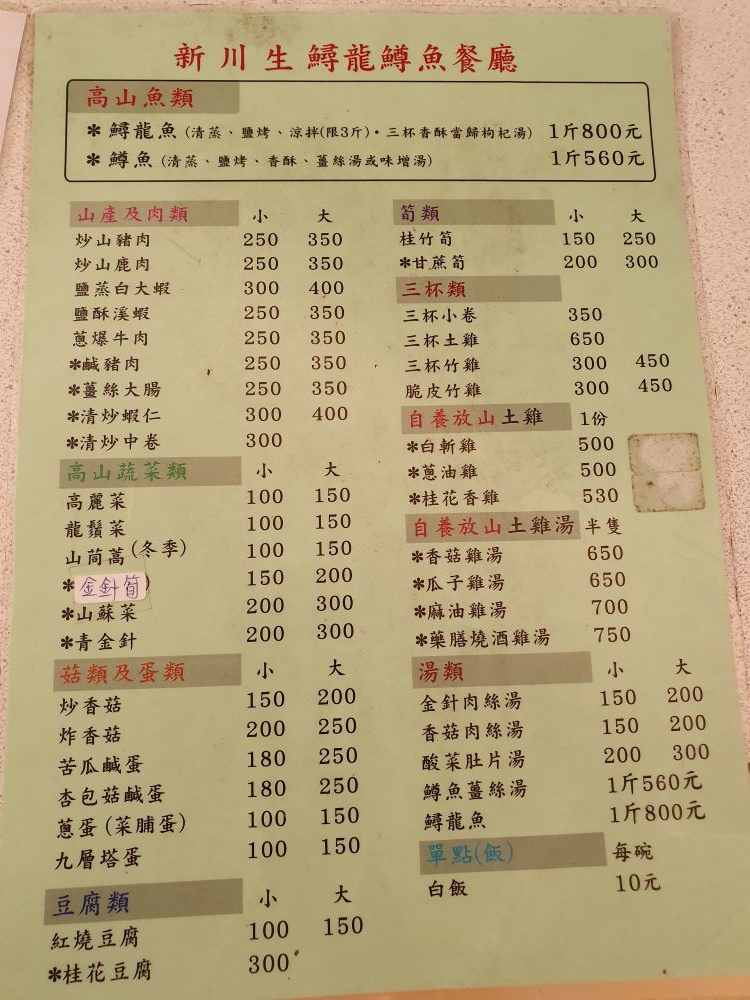 新川生鱘龍鱒魚餐廳
高山魚類
＊鱘龍魚(清蒸、鹽烤、涼拌(限3斤)・三杯香酥當歸枸杞湯) 1斤800元
＊鱒魚(清蒸、鹽烤、香酥、薑絲湯或味增湯) 1斤560元
山產及肉類 小 大
炒山豬肉 250 350
炒山鹿肉 250 350
鹽蒸白大蝦 300 400
鹽酥溪蝦 250 350
蔥爆牛肉 250 350
＊鹹豬肉 250 350
＊薑絲大腸 250 350
＊清炒蝦仁 300 400
＊清炒中卷 300
高山蔬菜類 小 大
高麗菜 100 150
龍鬚菜 100 150
山茼蒿(冬季) 100 150
＊金針筍) 150 200
＊山蘇菜 200 300
＊青金針 200 300
菇類及蛋類 小 大
炒香菇 150 200
炸香菇 200 250
苦瓜鹹蛋 180 250
杏包菇鹹蛋 180 250
蔥蛋(菜脯蛋) 100 150
九層塔蛋 100 150
豆腐類 小 大
紅燒豆腐 100 150
＊桂花豆腐 300
筍類 小 大
桂竹筍 150 250
＊甘蔗筍 200 300
三杯類
三杯小卷 350
三杯土雞 650
三杯竹雞 300 450
脆皮竹雞 300 450
自養放山土雞 1份
＊白斬雞 500
＊蔥油雞 500
＊桂花香雞 530
自養放山土雞湯 半隻
＊香菇雞湯 650
＊瓜子雞湯 650
＊麻油雞湯 700
＊藥膳燒酒雞湯 750
湯類 小 大
金針肉絲湯 150 200
香菇肉絲湯 150 200
酸菜肚片湯 200 300
鱒魚薑絲湯 1斤560元
鱘龍魚 1斤800元
單點(飯) 每碗
白飯 10元